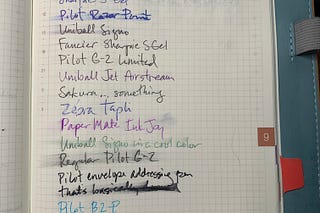 Sharpie S Gel
Pilot Razor Point
Uniball Signo
Fancier Sharpie S Gel
Pilot G-2 Limited
Uniball Jet Airstream
Sakura... something
Zebra Taph
PaperMate Ink Joy
Uniball Signo in a cool color
Regular Pilot G-2
Pilot envelope addressing pen
that's basically
Pilot B2-P
9